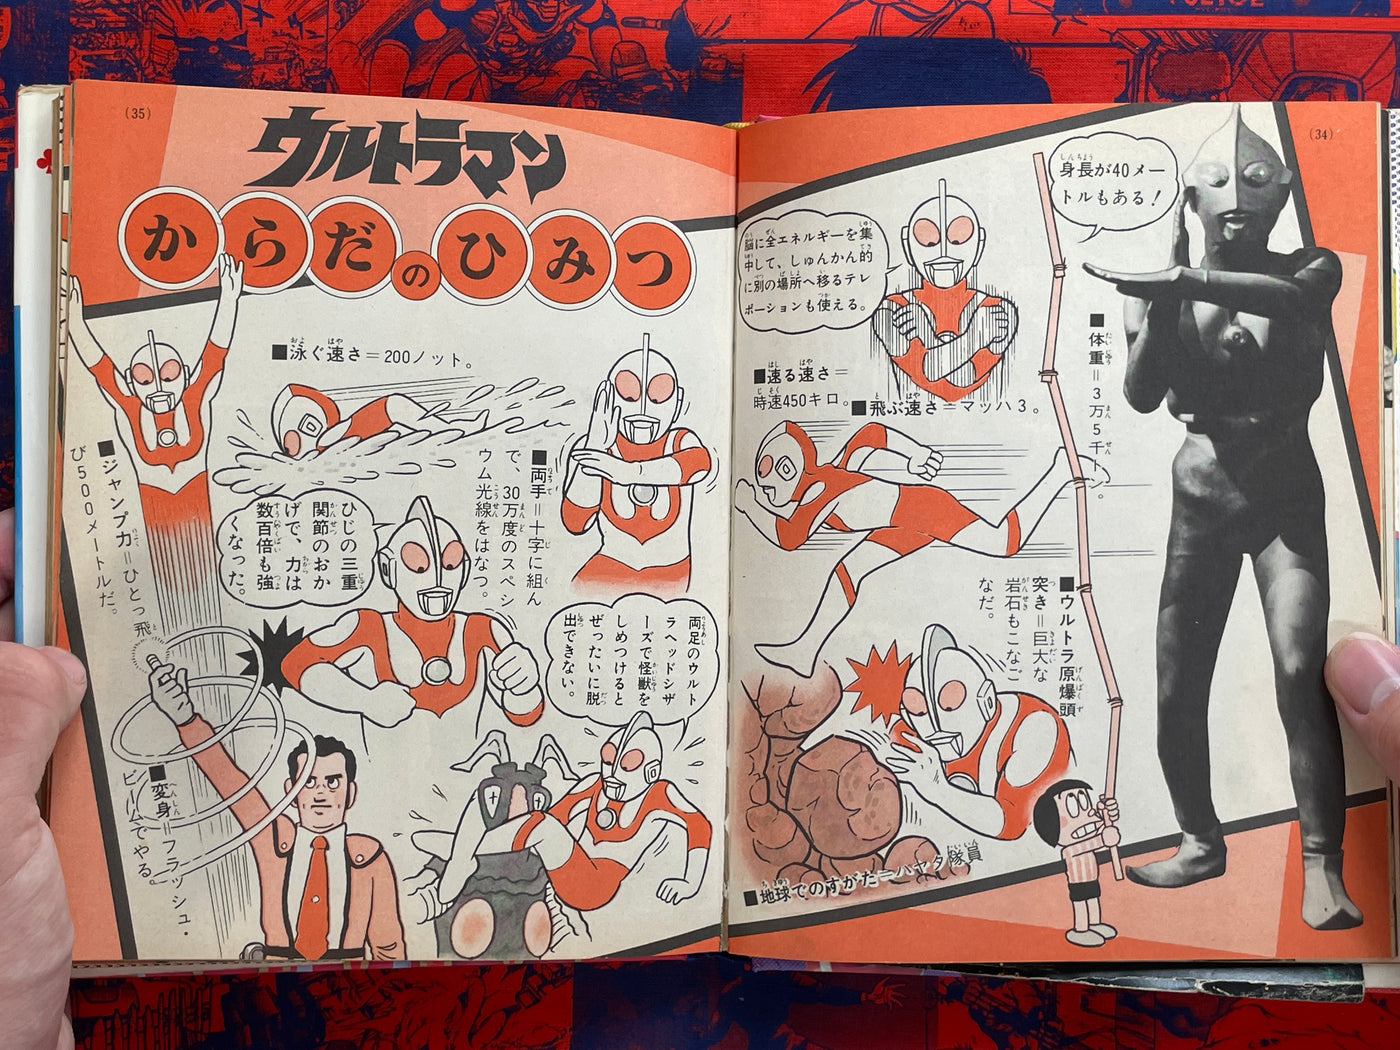 (34)
身長が40メー
トルもある！
■体重＝3万5千トン。
脳に全エネルギーを集
中して、しゅんかん的
に別の場所へ移るテレ
ポーションも使える。
■速る速さ＝
時速450キロ。
■飛ぶ速さ＝マッハ3。
■ウルトラ原爆頭
突き＝巨大な
岩石もこなご
なだ。
■地球でのすがた＝ハヤタ隊員
(35)
ウルトラマン
からだのひみつ
■泳ぐ速さ＝200ノット。
■両手＝十字に組ん
で、30万度のスペシ
ウム光線をはなつ。
■ジャンプ力＝ひとっ飛
び500メートルだ。
ひじの三重
関節のおか
げで、力は
数百倍も強
くなった。
両足のウルト
ラヘッドシザ
ーズで怪獣を
しめつけると
ぜったいに脱
出できない。
■変身＝フラッシュ・
ビームでやる。